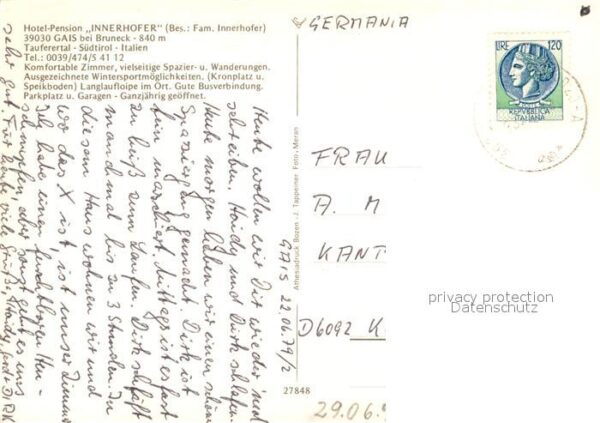 Hotel-Pension „INNERHOFER" (Bes.: Fam. Innerhofer)
39030 GAIS bei Bruneck - 840 m
Tauferertal - Südtirol - Italien
Tel.: 0039/474/5 41 12
Komfortable Zimmer, vielseitige Spazier- u. Wanderungen.
Ausgezeichnete Wintersportmöglichkeiten. (Kronplatz u.
Speikboden) Langlaufloipe im Ort. Gute Busverbindung.
Parkplatz u. Garagen - Ganzjährig geöffnet.
Heute wollen wir Dir wieder mal
schreiben. Haidy und Dirk schlafen.
Heute morgen haben wir einen schönen
Spaziergang gemacht. Dirk ist
fein marschiert. Mittags ist es fast
zu heiß zum Laufen. Dirk schläft
manchmal bis zu 3 Stunden. In
diesem Haus wohnen wir und
wo das X ist, ist unser Zimmer
Ich habe einen furchtbaren Heu-
schnupfen, aber sonst geht es uns
sehr gut. Für heute viele Grüße, Haidy, und DIRK
GAIS 22.06.79/2
Athesiadruck Bozen - J. Tappeiner Foto, Meran
27848
GERMANIA
LIRE 120
REPVBBLICA
ITALIANA
FRAU
A. M
KANT
D6092 K
privacy protection
Datenschutz
29.06.